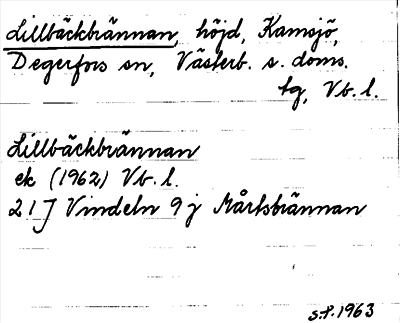 Lillbäckbrännan, höjd, Kamsjö,
Degerfors sn, Västerb. s. doms.
tg, Vb. l.
Lillbäckbrännan
ek (1962) Vb. l.
21 J Vindeln 9 j Mårtsbrännan
s.f. 1963